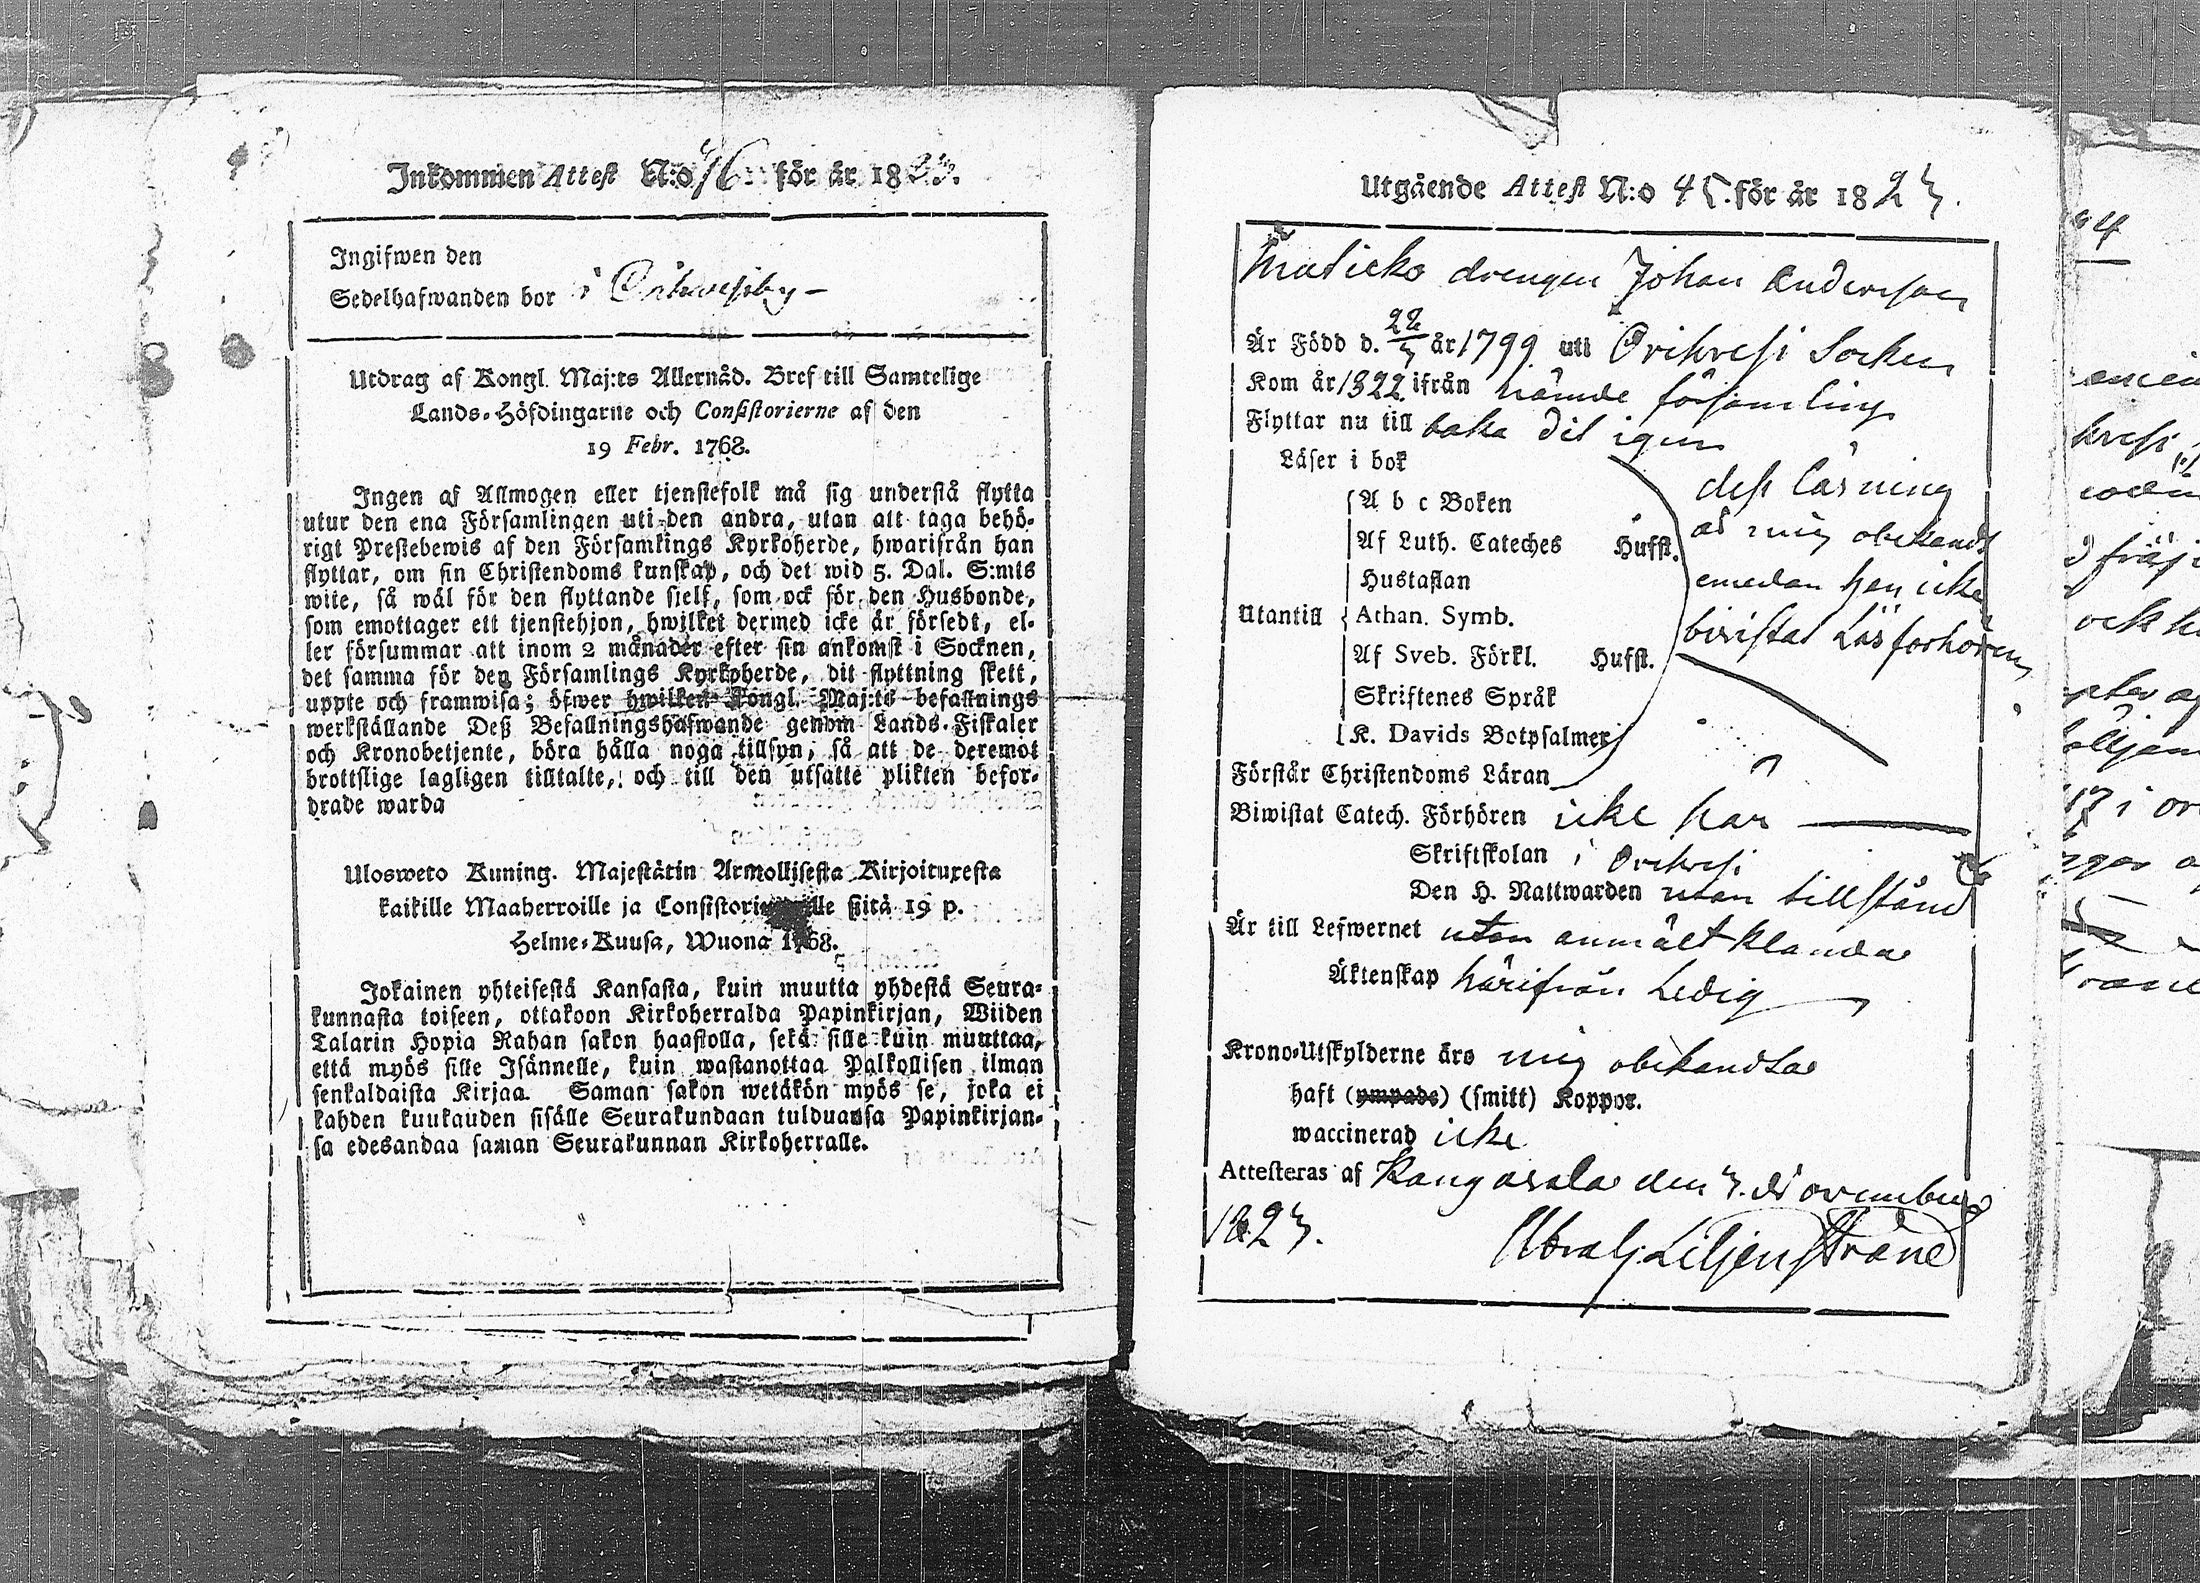 Inkommen Attest N:o 76 för år 1823.
Ingifwen den
Sedelhafwanden bor i Orihvesiby
Utdrag af Kongl. Maj:ts Allernåd. Bref till Samtelige
Lands-Höfdingarne och Consistorierne af den
19 Febr. 1768.
Ingen af Allmogen eller tjenstefolk må sig understå flytta
utur den ena Församlingen uti den andra, utan att taga behö-
rigt Prestebewis af den Församlings Kyrkoherde, hwarifrån han
flyttar, om sin Christendoms kunskap, och det wid 5. Dal. S:mts
wite, så wäl för den flyttande sielf, som ock för den Husbonde,
som emottager ett tjenstehjon, hwilket dermed icke är försedt, el-
ler försummar att inom 2 månader efter sin ankomst i Socknen,
det samma för den Församlings Kyrkoherde, dit flyttning skett,
uppte och framwisa; öfwer hwilken Kongl. Maj:ts befallnings
werkställande Deß Befallningshafwande genom Lands-Fiskaler
och Kronobetjente, böra hålla noga tillsyn, så att de deremot
brottslige lagligen tilltalte, och till den utsatte plikten befor-
drade warda
Ulosweto Kuning. Majestätin Armollisesta Kirjoituxesta
kaikille Maaherroille ja Consistoriumille siitä 19 p.
Helme-Kuusa, Wuona 1768.
Jokainen yhteisestä Kansasta, kuin muutta yhdestä Seura-
kunnasta toiseen, ottakoon Kirkoherralda Papinkirjan, Wiiden
Talarin Hopia Rahan sakon haastolla, sekä sille kuin muuttaa,
että myös sille Isännelle, kuin wastanottaa Palkollisen ilman
senkaldaista Kirjaa. Saman sakon wetäkön myös se, joka ei
kahden kuukauden sisälle Seurakundaan tulduansa Papinkirjan-
sa edesandaa saman Seurakunnan Kirkoherralle.
Utgående Attest N:o 45. för år 1823.
drengen Johan Andersson
Är Född d. 22/3 år 1799 uti Orihvesi Socken
Kom år 1822 ifrån nämde församling
Flyttar nu till baka dit igen
Läser i bok
A b c Boken
Af Luth. Cateches Hufst.
Hustaflan
Utantill Athan. Symb.
Af Sveb. Förkl. Hufst.
Skriftenes Språk
K. Davids Botpsalmer
dess läsning
är mig obekandt
emedan han icke
bivistat Läsförhören
Förstår Christendoms Läran
Biwistat Catech. Förhören icke här
Skriftskolan i Orihvesi
Den H. Nattwarden utan tillstånd
Är till Lefwernet utan anmält klander
Äktenskap härifrån Ledig
Krono-Utskylderne äro mig obekandta
haft (ympade) (smitt) Koppor.
waccinerad icke
Attesteras af Kangasala den 3. November
1823.
Abrah. Liljenstrand